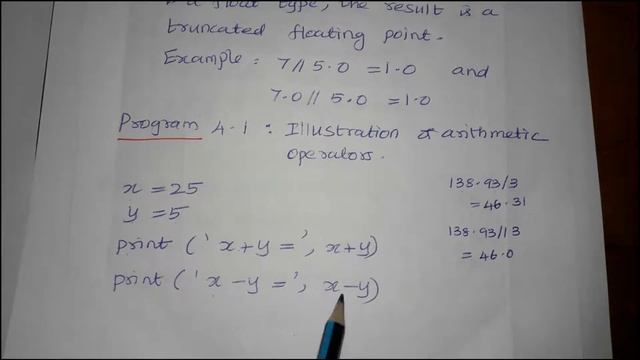 float type, the result is a
truncated floating point.
Example: 7//5.0 = 1.0 and
7.0//5.0 = 1.0
Program 4.1: Illustration of arithmetic
operators.
x = 25
y = 5
print ('x+y =', x+y)
print ('x-y =', x-y)
138.93/3
= 46.31
138.93//3
= 46.0